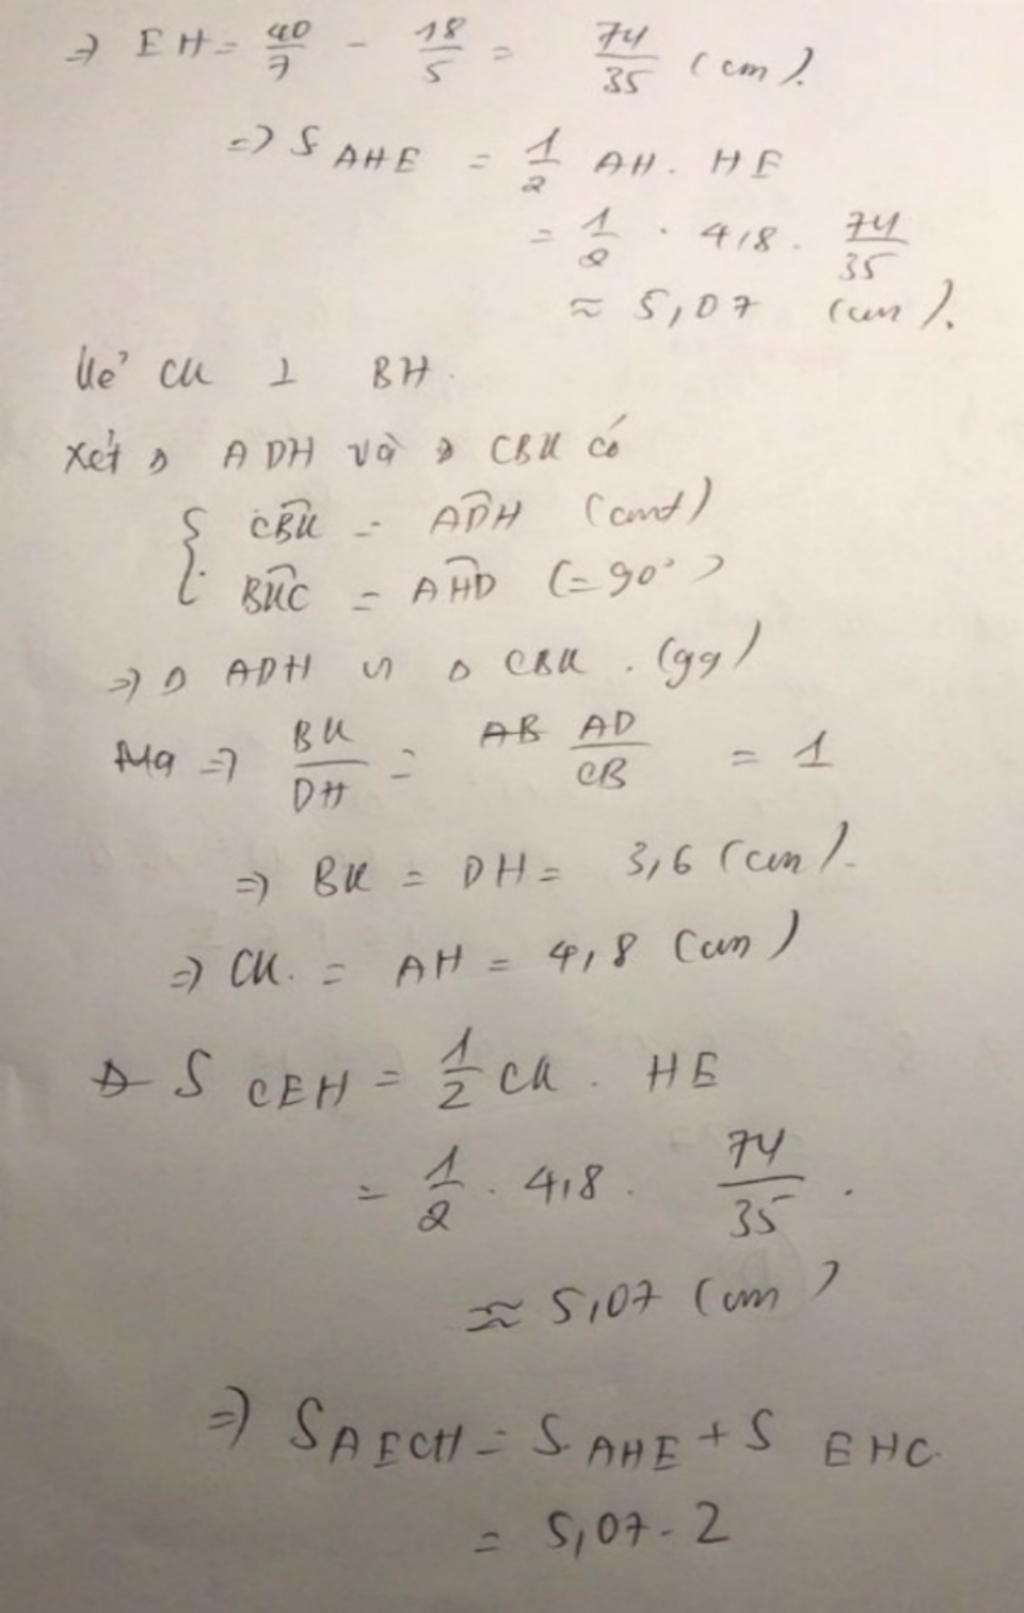 ⇒ EH = 40/7 - 18/5 = 74/35 (cm).
=> S AHE = 1/2 AH . HE
= 1/2 . 4,8 . 74/35
≈ 5,07 (cm).
Kẻ CK ⊥ BH.
Xét Δ ADH và Δ CBK có
{ CBK = ADH (cmt)
BKC = AHD (=90°)
=> Δ ADH ∽ Δ CBK . (gg)
=> BK/DH = AD/CB = 1
=> BK = DH = 3,6 (cm).
=> CK = AH = 4,8 (cm)
S CEH = 1/2 CK . HE
= 1/2 . 4,8 . 74/35 .
≈ 5,07 (cm)
=> S AECH = S AHE + S EHC
= 5,07 . 2